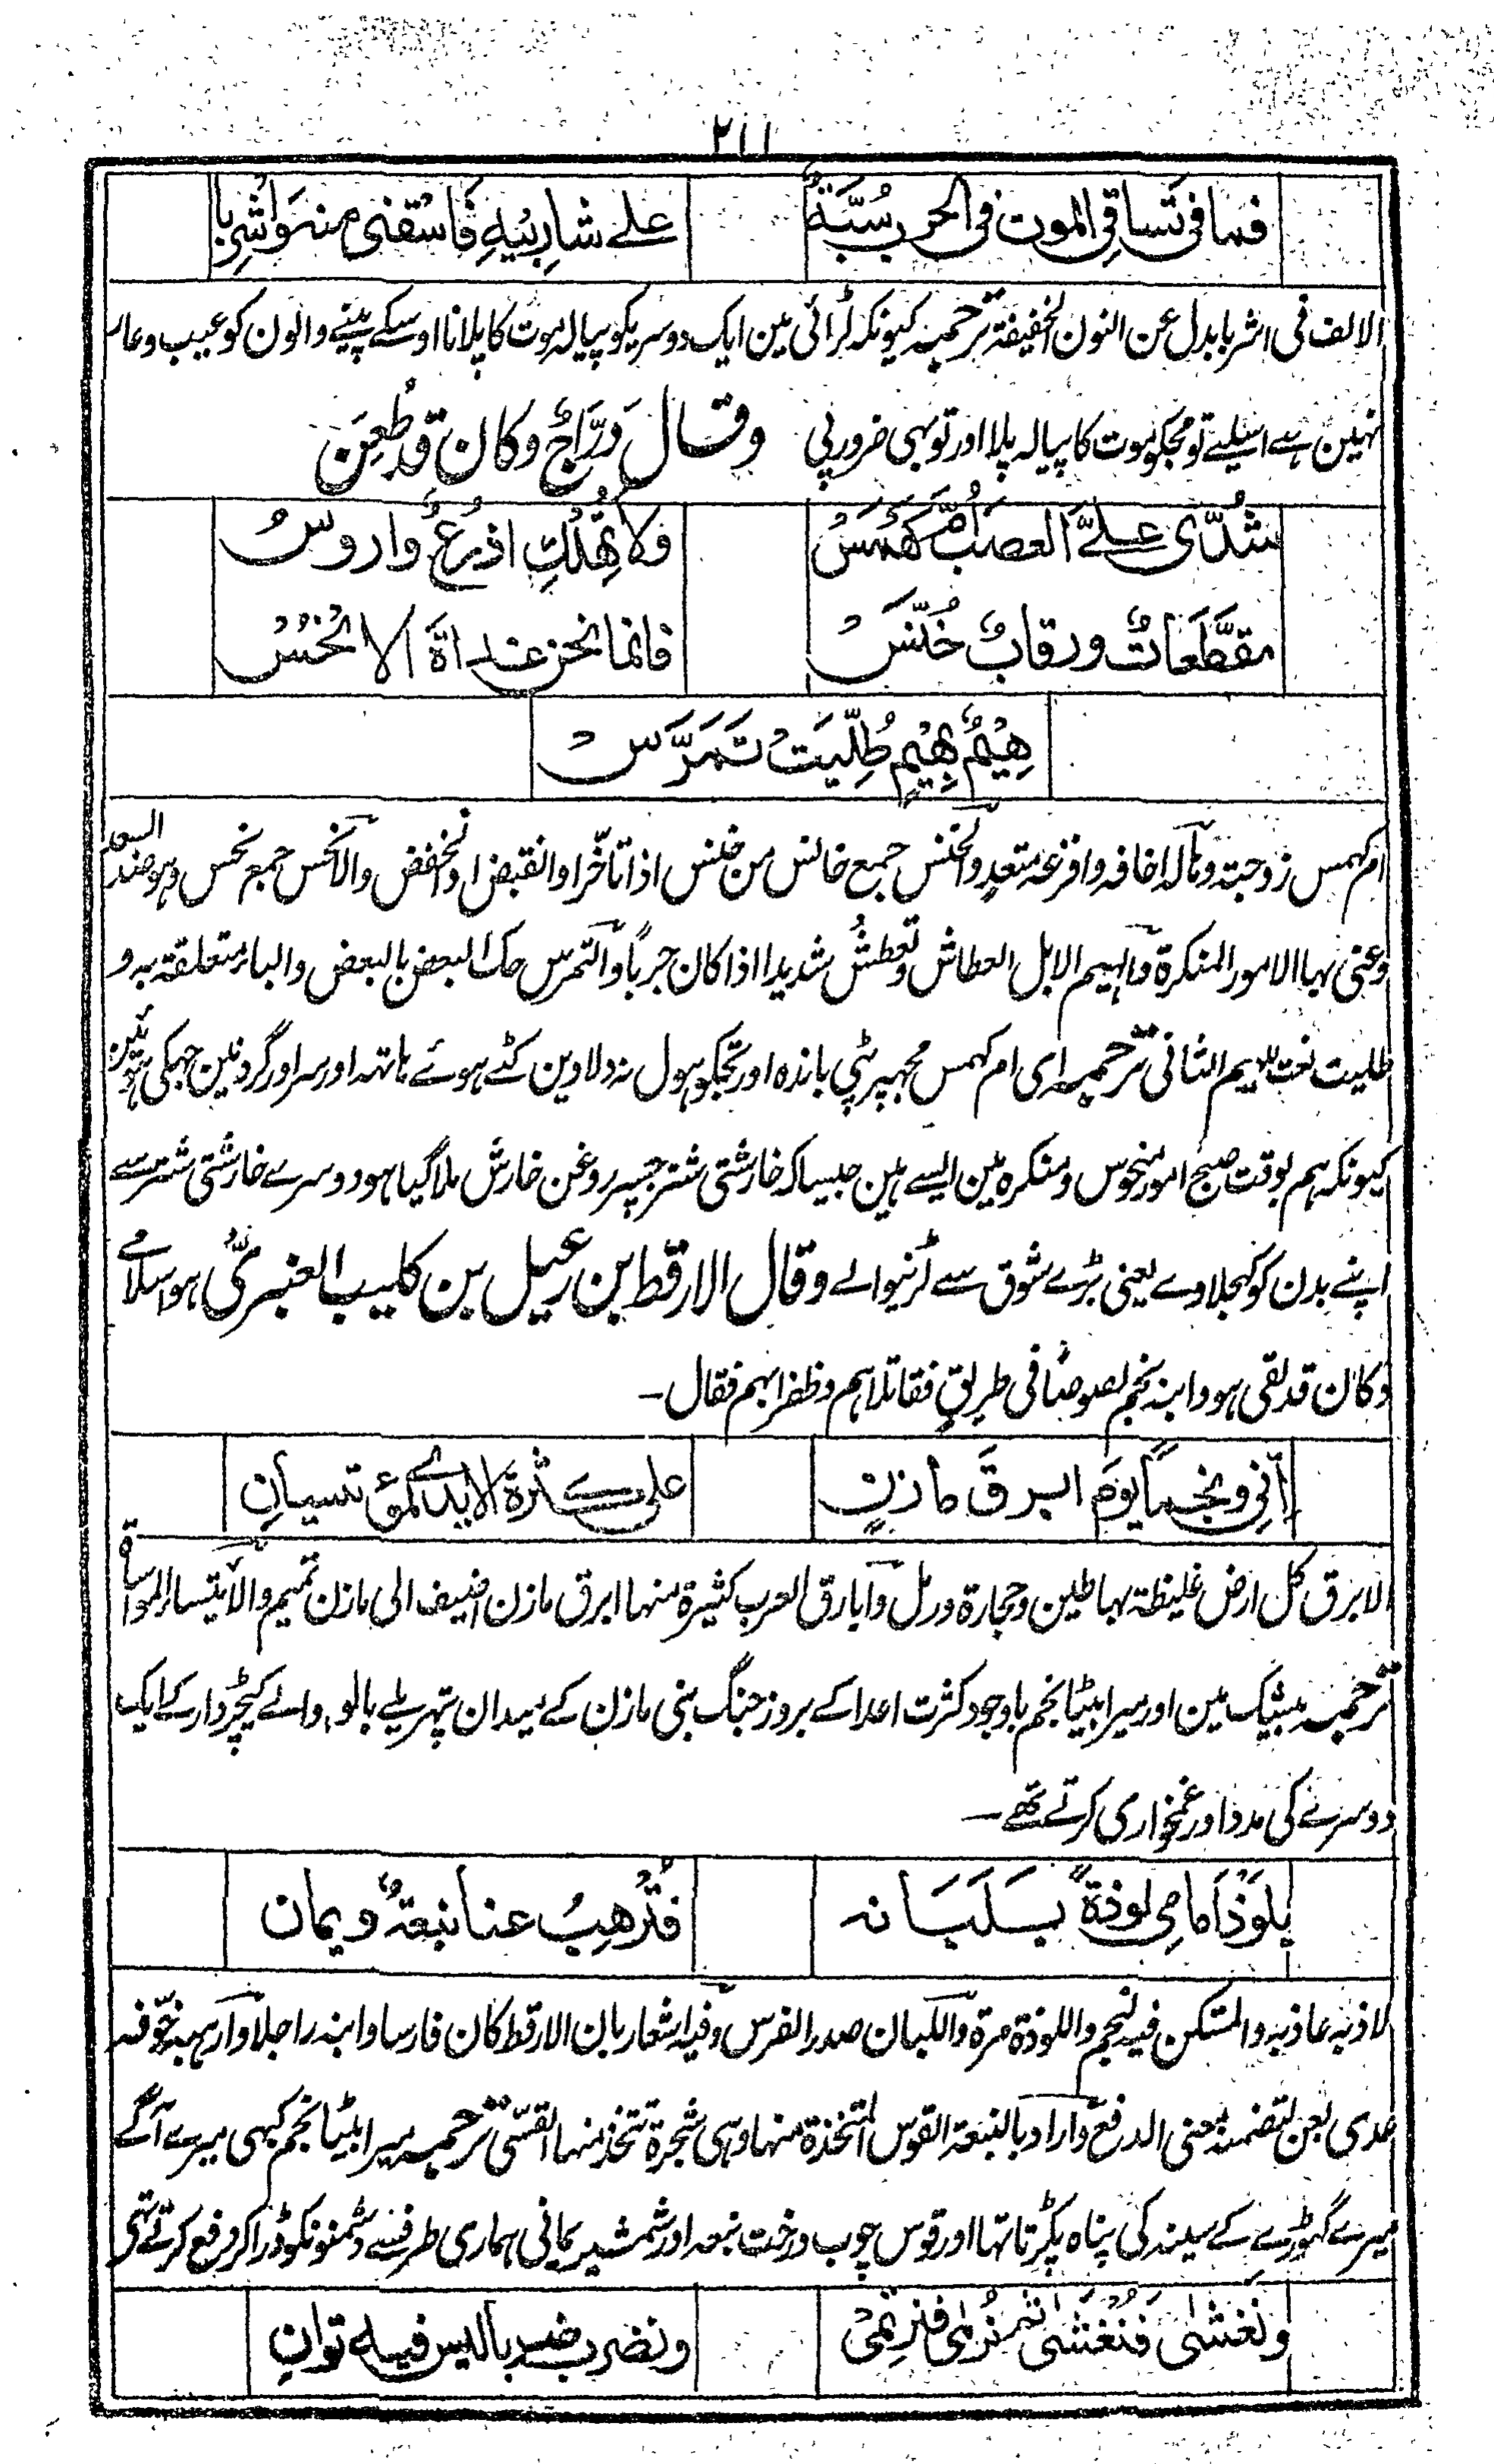 ٢١١
فما فى تَساقِى الموت فى الحرب سُبَّةٌ علے شارِبیهِ فَاسْقنى منه وَاشْرِبا
الالف فى اشربا بدل عن النون الخفیفة ترجمہ کیونکہ لڑائی مین ایک دوسریکو پیالہ موت کا پلانا اوسکے پینے والون کو عیب وعار
نہین ہے اسلیے تو مجکو موت کا پیالہ پلا اور تو بہی ضرور پی وقال دَرَّاجٌ وکان قد طُعِنَ
شُدِّى علےَّ العصبَ اُمَّ کَهْمَسْ ولا تَهُلْكِ اذرُعٌ واروسْ
مقطَّعاتٌ ورقابٌ خُنَّسْ فانما نحن غداةَ الانحُسْ
هِیْمٌ بِهِیْمٍ طُلِّیَتْ تَمَرَّسْ
ام کہمس زوجتہ وہالہ اخافہ وافزعہ متعدٍ والخنس جمع خانس من خنس اذا تاخّر او انقبض او انخفض والانحس جمع نحس وہو ضد السعد
وعنى بہا الامور المنکرة والہیم الابل العطاش وتعطشُ شدیدا اذا کان جربًا والتمرس حک البعض بالبعض والباء متعلقة بہ و
طلیت نعت للہیم الثانى ترجمہ اى ام کہمس مجہپر پٹی باندہ اور تجکو ہول نہ دلاوین کٹے ہوئے ہاتہہ اور سر اور گردنین جہکی ہوئین
کیونکہ ہم بوقت صبح امور منحوس ومنکرہ مین ایسے ہین جیساکہ خارشتی شتر جسپر روغن خارش ملا گیا ہو دوسرے خارشتی شتر سے
اپنے بدن کو کہجلاوے یعنی بڑے شوق سے لڑنیوالے وقال الارقط بن رعبل بن کلیب العنبرىّ ہو اسلامے
وکان قد لقى ہو وابنہ نجم لصوصًا فى طریقٍ فقاتلاہم وظفرا بہم فقال ـ
اِنى ونجمًا یومَ ابرقَ مازنٍ على کثرة الایدے لمؤتسیانِ
الابرق کل ارض غلیظة بہا طین وحجارة ورمل وابارق العرب کثیرة منہا ابرق مازن اضیف الى مازن تمیم والایتساء المواساة
ترجمہ بیشک مین اور میرا بیٹا نجم باوجود کثرت اعدا کے بروز جنگ بنی مازن کے میدان پتہریلے بالو والے کیچڑدار کے ایک
دوسرے کی مدد اور غمخواری کرتے تہے ـ
یلوذُ اَمامى لوذةً بلَبانه فتُرهِبُ عنا نبعةٌ ویمان
لاذ بہ عاذ بہ والمستکن فیہ لنجم واللوذة مرة واللبان صدر الفرس وفیہ اشعار بان الارقط کان فارسا وابنہ راجلا وارہبہ خوّفہ
عدى بعن لتضمنہ معنى الدفع واراد بالنبعة القوس المتخذة منہا وہى شجرة تتخذ منہا القسىّ ترجمہ میرا بیٹا نجم کبہی میرے آگے
میرے گہوڑے کے سینہ کی پناہ پکڑتا تہا اور قوس چوب درخت نبعہ اور شمشیر یمانی ہماری طرفسے دشمنونکو ڈرا کر دفع کرتے تہی
ونَغشى فنُغشى ثم نُرمى فنرتمى ونضرب ضربا لیس فیه توانِ